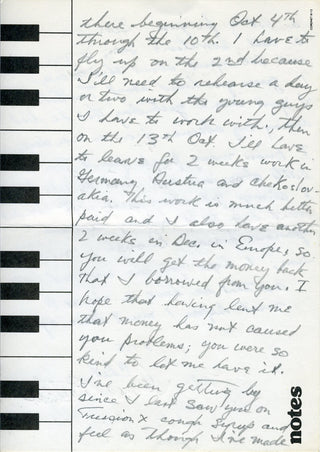 there beginning Oct 4th
through the 10th. I have to
fly up on the 2nd because
I'll need to rehearse a day
or two with the young guys
I have to work with, then
on the 13th Oct. I'll have
to leave for 2 weeks work in
Germany, Austria and Chekoslov-
akia. This work is much better
paid and I also have another
2 weeks in Dec. in Europe, so
you will get the money back
that I borrowed from you. I
hope that having lent me
that money has not caused
you problems; you were so
kind to let me have it.
I've been getting by
since I last saw you on
Tussionx cough syrup and
feel as though I've made
notes